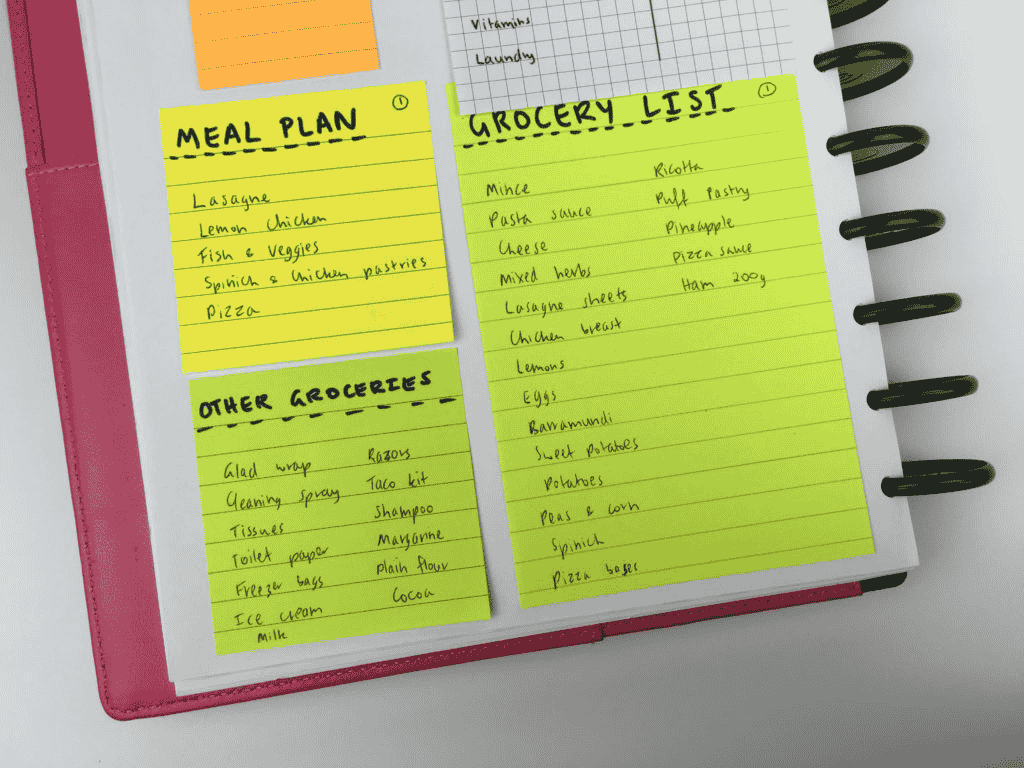 Vitamins
Laundry
MEAL PLAN
1
Lasagne
Lemon Chicken
Fish & Veggies
Spinich & Chicken pastries
Pizza
OTHER GROCERIES
Glad wrap
Cleaning spray
Tissues
Toilet paper
Freezer bags
Ice cream
Milk
Razors
Taco kit
Shampoo
Margarine
Plain flour
Cocoa
GROCERY LIST
1
Mince
Pasta sauce
Cheese
Mixed herbs
Lasagne sheets
Chicken breast
Lemons
Eggs
Barramundi
Sweet Potatoes
Potatoes
Peas & corn
Spinich
Pizza bases
Ricotta
Puff Pastry
Pineapple
Pizza sauce
Ham 200g